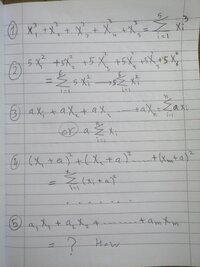 ① x₁³ + x₂³ + x₃³ + x₄³ + x₅³ = ∑ᵢ₌₁⁵ xᵢ³
② 5x₁² + 5x₂² + 5x₃² + 5x₄² + 5x₅² + 5x₆²
= ∑ᵢ₌₁⁶ 5xᵢ² → 5∑ᵢ₌₁⁶ xᵢ²
③ ax₁ + ax₂ + ax₃ ........ + axₙ = ∑ᵢ₌₁ⁿ axᵢ
or a ∑ᵢ₌₁ⁿ xᵢ
④ (x₁ + a)² + (x₂ + a)² ........ + (xₘ + a)²
= ∑ᵢ₌₁ (xᵢ + a)²
. . . . . . .
⑤ a₁x₁ + a₂x₂ + ........ + aₘxₘ
= ? How